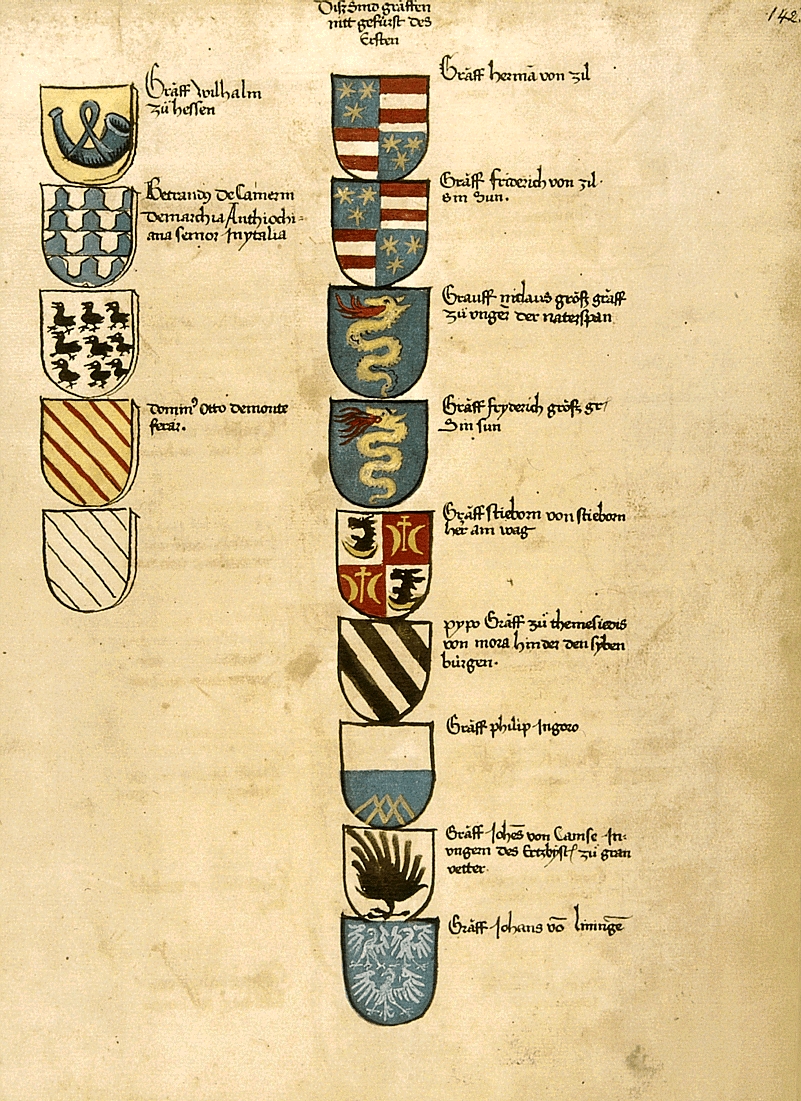 Diß sind gräffen
nitt gefürst des
Ersten
142
Gräff wilhalm
zü hessen
Betrandꝰ De Camerin
Demarchia Anthiochi-
ana semor Inytalia
Dominꝰ Otto Demonte
ferar.
Gräff hermā von zil
Gräff friderich von zil.
Sin Sun.
Grauff niclaus gröff gräff
zü vngeř der naterspan
Gräff fryderich gröff gr
Sin sun
Gräff stieborn von stieborn
her am wag
pypo Gräff zü themesiedis
von mora hinder den syben
bürgen.
Gräff philip Ingoro
Gräff Johēs von Camse In
vngern des Ertzbyst zü gran
vetter
Gräff Johans vō liningē